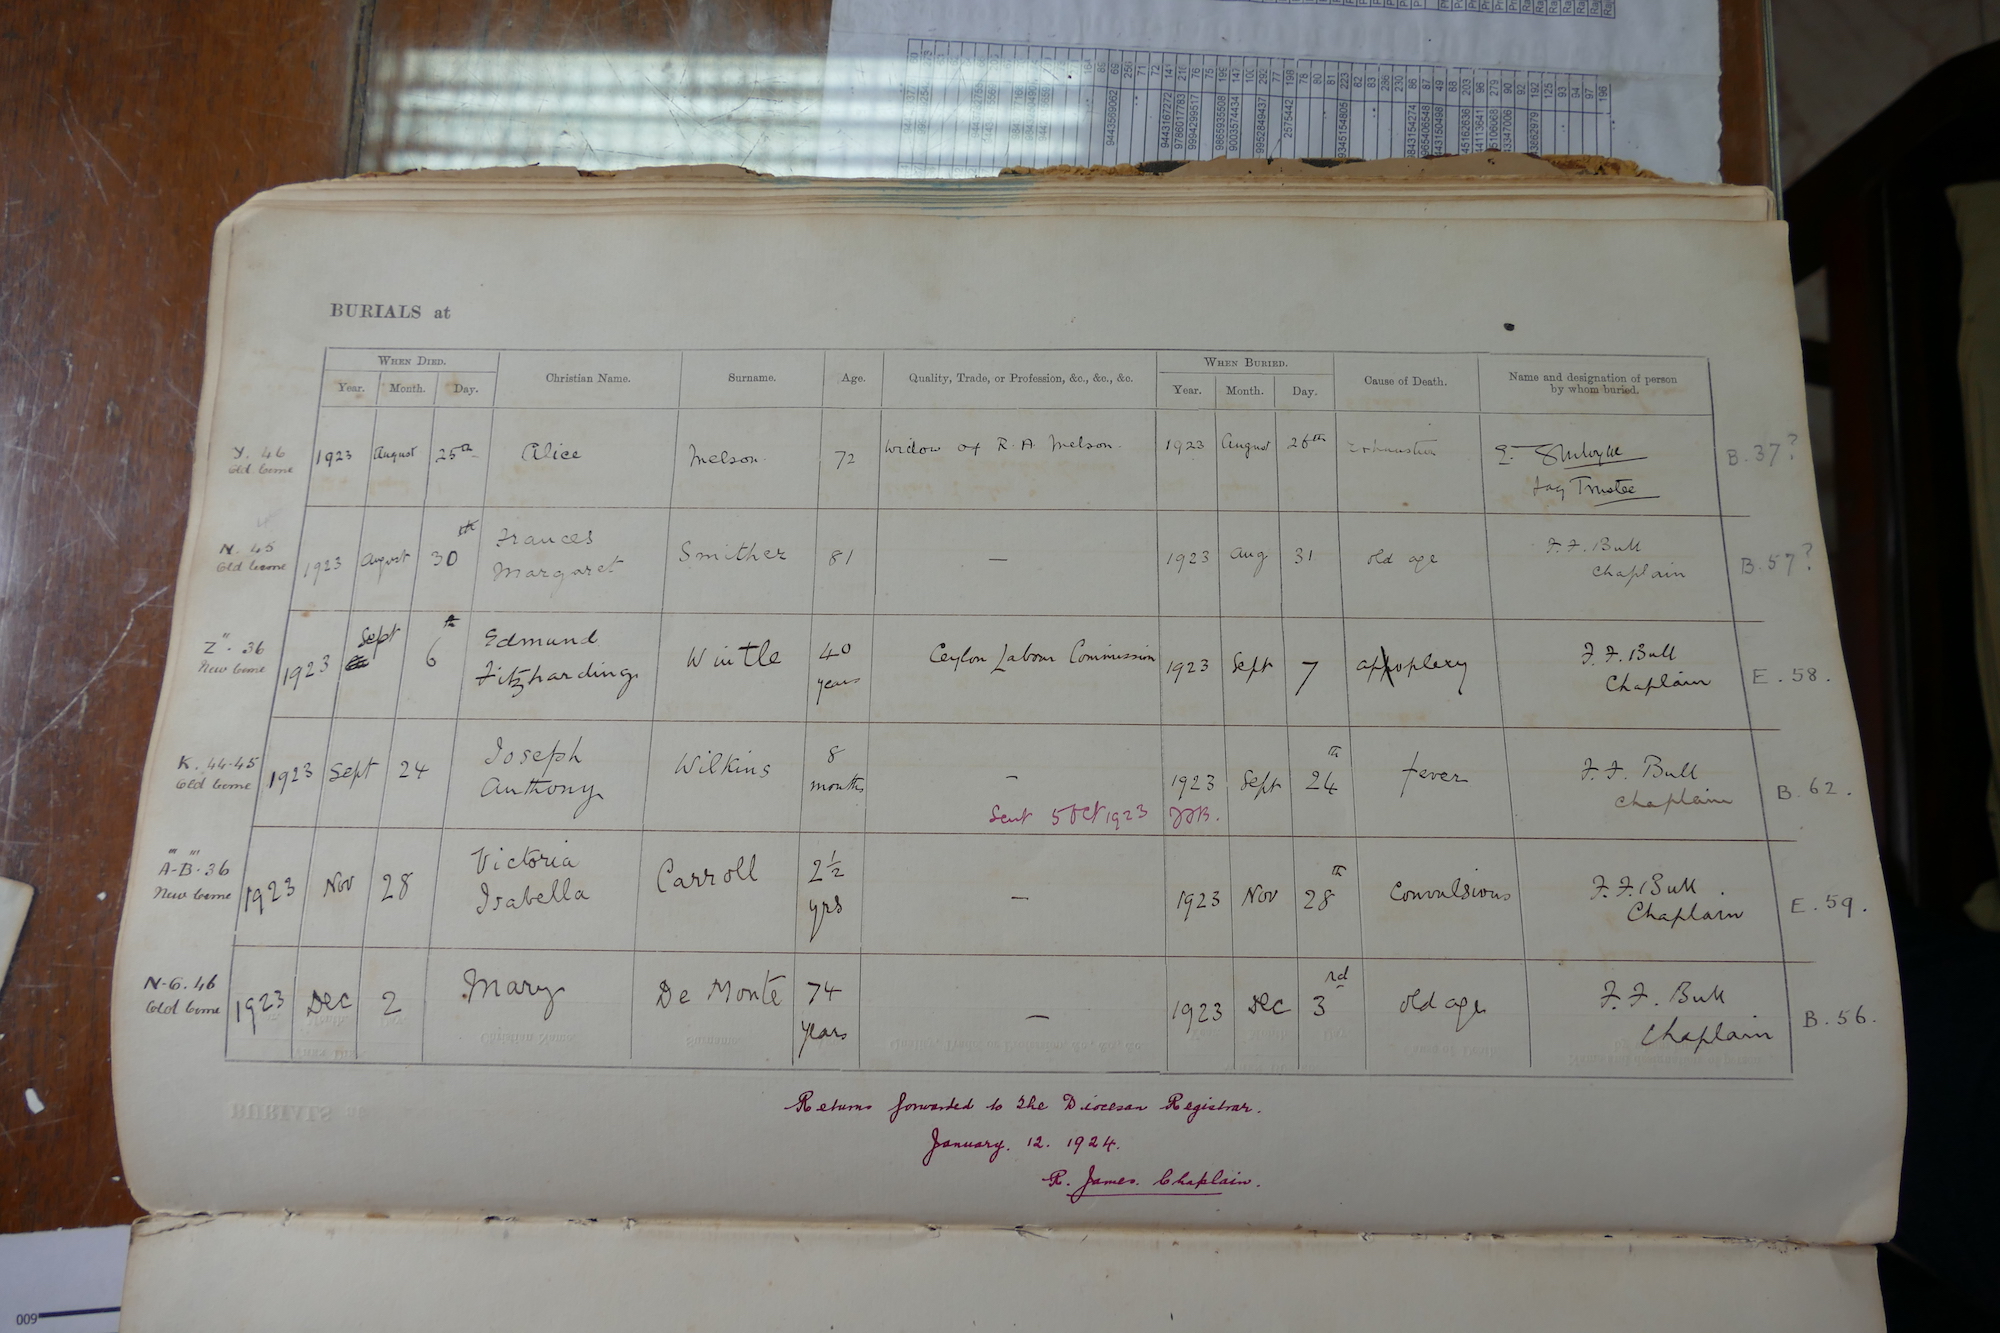 BURIALS at
WHEN DIED.
Year. Month. Day.
Christian Name.
Surname.
Age.
Quality, Trade, or Profession, &c., &c., &c.
WHEN BURIED.
Year. Month. Day.
Cause of Death.
Name and designation of person
by whom buried.
Y. 46
Old Ceme
1923 August 25th Alice Melson 72 Widow of R. A. Melson. 1923 August 26th Exhaustion
Lay Trustee
B. 37?
N. 45
Old Ceme
1923 August 30th Frances
Margaret
Smither 81 — 1923 Aug 31 old age F. F. Bull
Chaplain
B. 57?
Z" 36
New Ceme
1923 Sept 6th Edmund
Fitzharding
Wintle 40
years
Ceylon Labour Commission 1923 Sept 7 apoplexy F. F. Bull
Chaplain
E. 58.
K. 44-45
Old Ceme
1923 Sept 24 Joseph
Anthony
Wilkins 8
months
— 1923 Sept 24th fever F. F. Bull
Chaplain
B. 62.
Sent 5 Oct 1923 FFB.
A'''-B'''. 36
New Ceme
1923 Nov 28 Victoria
Isabella
Carroll 2½
yrs
— 1923 Nov 28th Convulsions F. F. Bull.
Chaplain
E. 59.
N-G. 46
Old Ceme
1923 Dec 2 Mary De Monte 74
years
— 1923 Dec 3rd old age F. F. Bull
Chaplain
B. 56.
Returns forwarded to the Diocesan Registrar.
January. 12. 1924.
R. James. Chaplain.
009